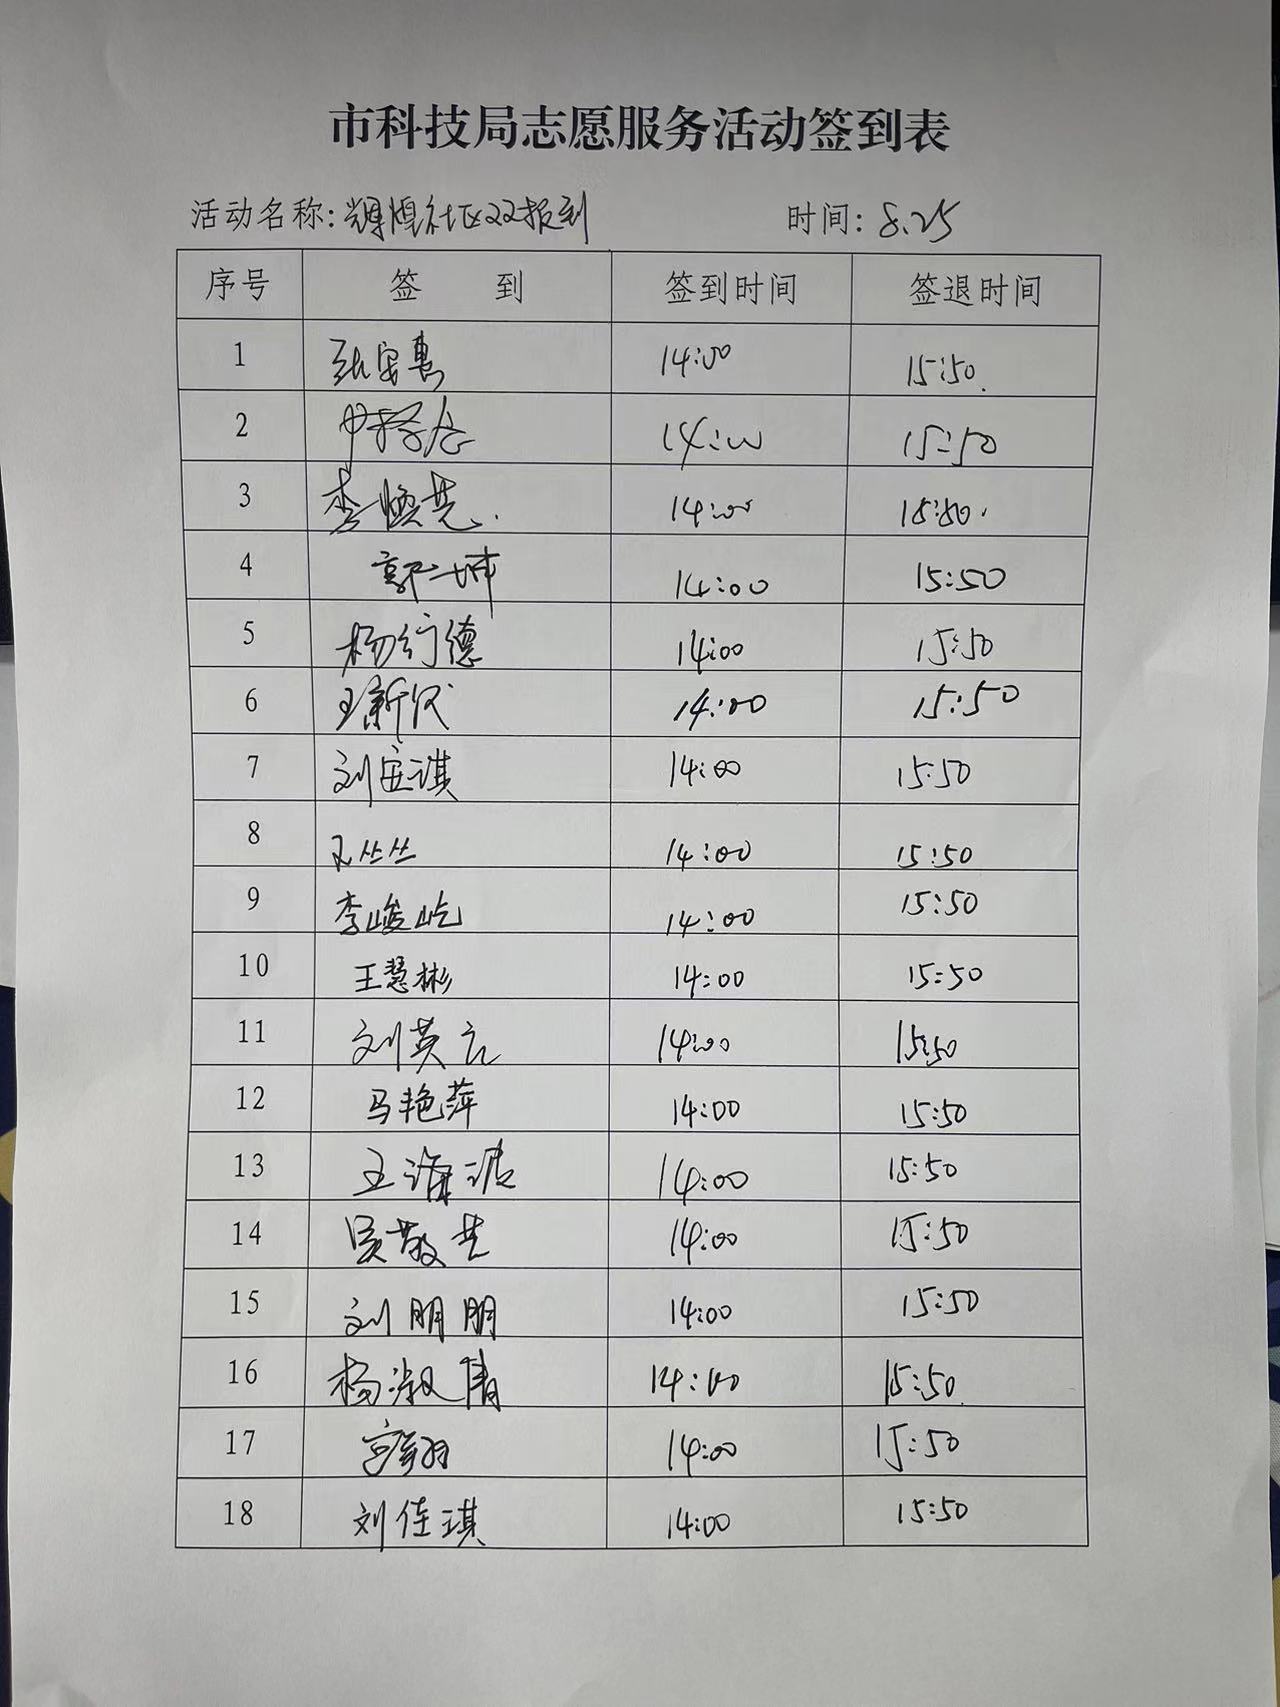 市科技局志愿服务活动签到表
活动名称:辉煌社区双报到 时间:8.25
序号 签 到 签到时间 签退时间
1 张安惠 14:00 15:50
2 14:00 15:50
3 李焕芝 14:00 15:50
4 郭一坤 14:00 15:50
5 杨衍德 14:00 15:50
6 王新 14:00 15:50
7 刘宝琪 14:00 15:50
8 王丛丛 14:00 15:50
9 李峻屹 14:00 15:50
10 王慧彬 14:00 15:50
11 刘英 14:00 15:50
12 马艳萍 14:00 15:50
13 王海洁 14:00 15:50
14 吴敬芝 14:00 15:50
15 刘朋朋 14:00 15:50
16 杨淑倩 14:00 15:50
17 14:00 15:50
18 刘佳琪 14:00 15:50